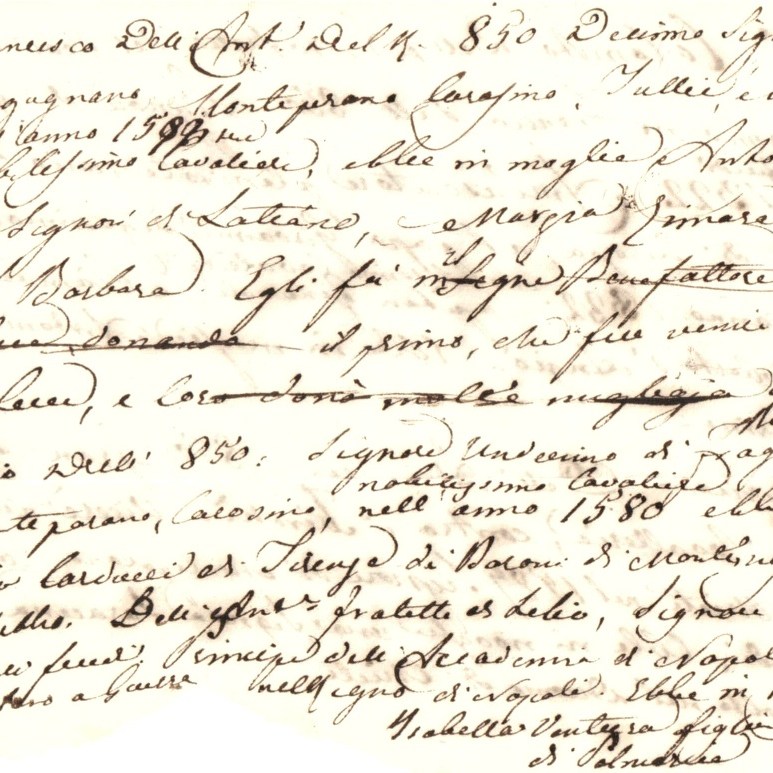 ncesco Dell'Ant.ª Del K. 850 Decimo Sig
gagnano, Monteparano Carosino, Tullie, e
anno 1589
bilissimo Cavaliere, ebbe in moglie Anto
Signori di Latiano, e Marzia Zimare
Barbara. Egli fu insegne Benefattore
donando il primo, che fece venire
Lecce, e loro donò molte migliaja
Dell' 850: Signore Undecimo di Frag
nobilissimo Cavaliere
teparano, Carosino, nell'anno 1580 ebbe
Carducci di Firenze di Baroni di Monte
Dell' fratello di Lelio, Signore
feudi. Principe dell' Accademia di Napol
a Guerra nel Regno di Napoli. Ebbe in
Isabella Ventura figlia
di